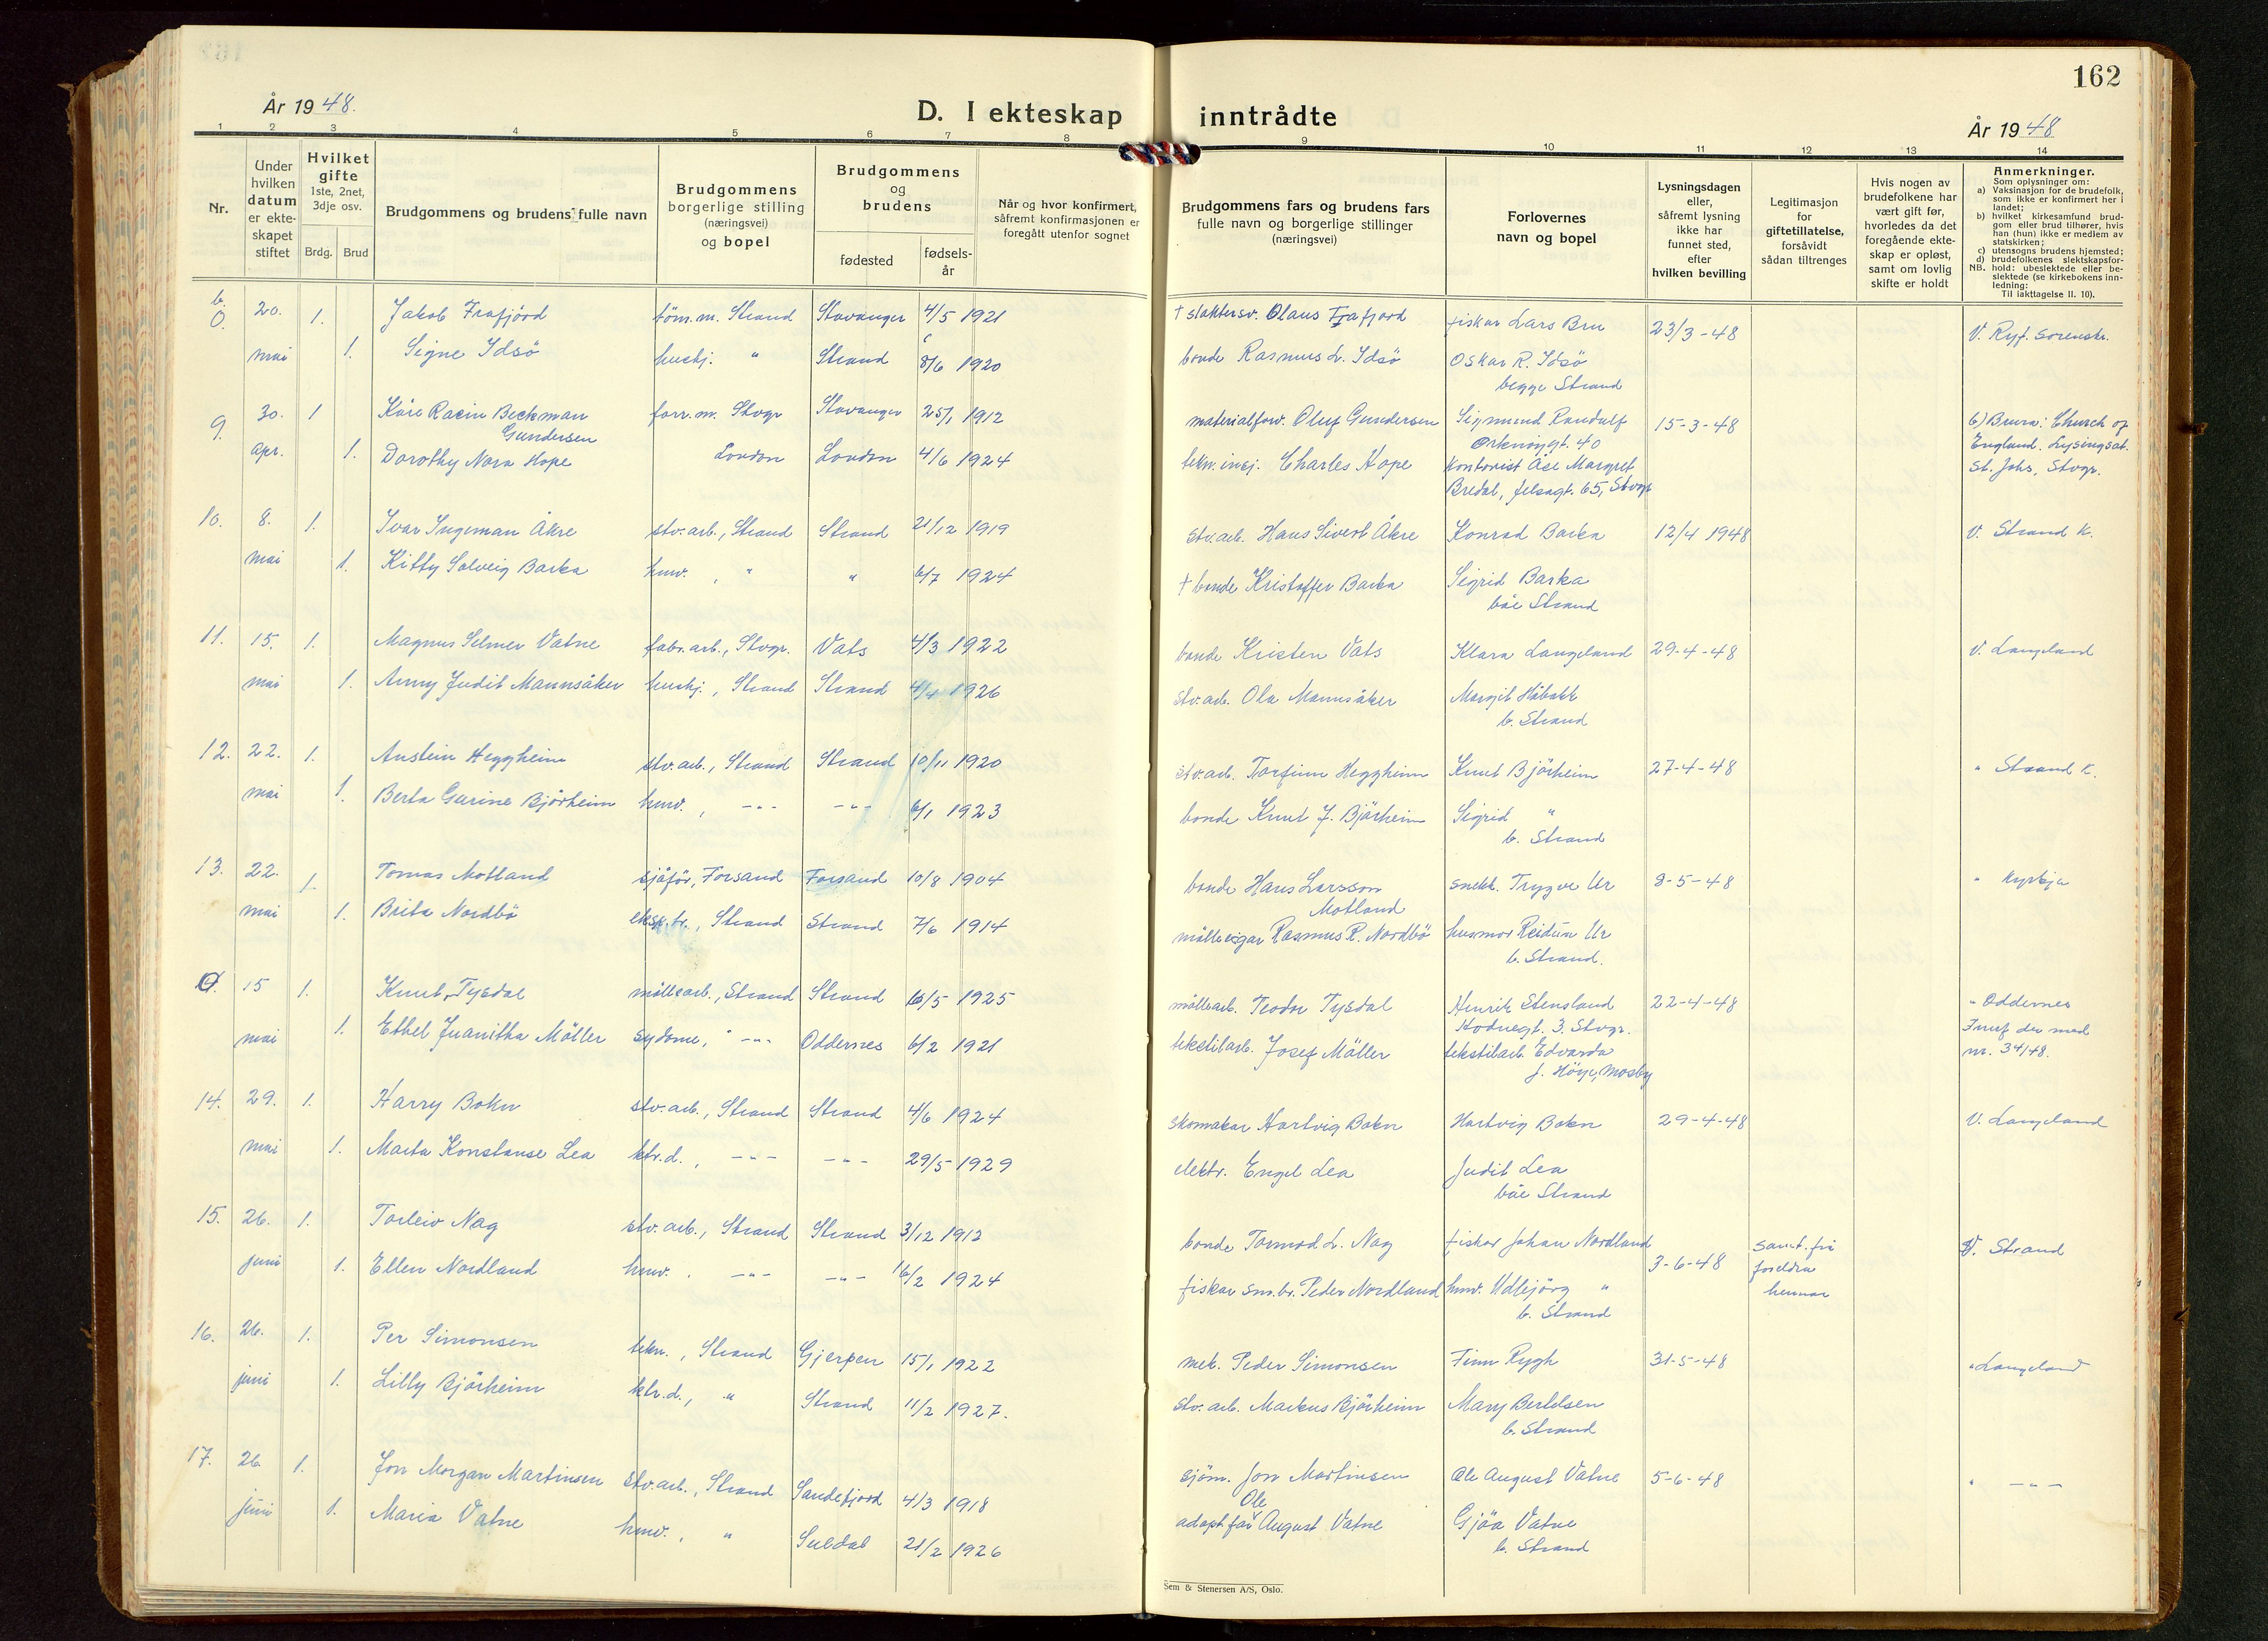 162
År 1948.
D. I ekteskap inntrådte
År 1948
1 2 3 4 5 6 7 8 9 10 11 12 13 14
Nr.
Under hvilken datum er ekteskapet stiftet
Hvilket gifte 1ste, 2net, 3dje osv.
Brdg. Brud
Brudgommens og brudens fulle navn
Brudgommens borgerlige stilling (næringsvei) og bopel
Brudgommens og brudens
fødested
fødsels-år
Når og hvor konfirmert, såfremt konfirmasjonen er foregått utenfor sognet
Brudgommens fars og brudens fars fulle navn og borgerlige stillinger (næringsvei)
Forlovernes navn og bopel
Lysningsdagen eller, såfremt lysning ikke har funnet sted, efter hvilken bevilling
Legitimasjon for giftetillatelse, forsåvidt sådan tiltrenges
Hvis nogen av brudefolkene har vært gift før, hvorledes da det foregående ekteskap er opløst, samt om lovlig skifte er holdt
Anmerkninger.
Som oplysninger om:
a) Vaksinasjon for de brudefolk, som ikke er konfirmert her i landet;
b) hvilket kirkesamfund brudgom eller brud tilhører, hvis han (hun) ikke er medlem av statskirken;
c) utensogns brudens hjemsted;
d) brudefolkenes slektskapsforhold: ubeslektede eller beslektede (se kirkebokens innledning:
NB.
Til iakttagelse II. 10).
b. 0. 20. 1. Jakob Frafjord töm.m. Strand Stavanger 4/5 1921 † slaktersv. Olaus Frafjord fiskar Lars Bru 23/3-48 V. Ryf. sorenskr.
mai 1. Signe Idsö hushj. " Strand 8/6 1920 bonde Rasmus L. Idsö Oskar R. Idsö
begge Strand
9. 30. 1 Kåre Racin Beckman Gundersen forr.m. Stvgr Stavanger 25/1 1912 materialforv. Oluf Gundersen Sigmund Randulf 15-3-48 b) Brura: Church of
Orknöygt. 40 England. Lysingsat.
apr. 1. Dorothy Nora Hope London London 4/6 1924 tekn. insj. Charles Hope kontorist Åse Margret St. Johs, Stvgr.
Bredal, Jelsagt. 65, Stvgr
10. 8. 1. Ivar Ingeman Åkre stv.arb., Strand Strand 21/12 1919 stv.arb. Hans Sivert Åkre Konrad Barka 12/4 1948 V. Strand K.
mai 1. Kitty Solveig Barka hmv. , " " 6/7 1924 † bonde Kristoffer Barka Sigrid Barka
båe Strand
11. 15. 1. Magnus Selmer Vatne fabr.arb., Stvgr. Vats 4/3 1922 bonde Kristen Vats Klara Langeland 29-4-48 V. Langeland
mai 1. Anny Judit Mannsåker hushj., Strand Strand 4/4 1926 stv.arb. Ola Mannsåker Margit
b. Strand
12. 22. 1. Austein Heggheim stv.arb., Strand Strand 10/11 1920 stv.arb. Torfinn Heggheim Knut Björheim 27-4-48 " Strand K.
mai 1. Berta Gurine Björheim hmv. , -"- -"- 6/1 1923 bonde Knut J. Björheim Sigrid "
b. Strand
13. 22. 1. Tomas Motland sjåför, Forsand Forsand 10/8 1904 bonde Hans Larsson Motland snekk. Trygve Ur 8-5-48 " kyrkja
mai 1. Brita Nordbö eksp.tr., Strand Strand 7/6 1914 mölleeigar Rasmus R. Nordbö husmor Reidun Ur
b. Strand.
0. 15 1. Knut Tysdal möllearb., Strand Strand 16/5 1925 möllearb. Teodor Tysdal Henrik Stensland 22-4-48 " Oddernes
Hodnegt. 3. Stvgr. Innf der med
mai 1. Ethel Juanitha Möller sydame, " -"- Oddernes 6/2 1921 tekstilarb. Josef Möller tekstilarb. Edvarda nr. 34/48.
J. Höye, Mosby
14. 29. 1. Harry Bokn stv.arb., Strand Strand 4/6 1924 skomakar Hartvig Bokn Hartvig Bokn 29-4-48 V. Langeland
mai 1. Marta Konstanse Lea ktr.d. , -"- -"- 29/5 1929 elektr. Engel Lea Judit Lea
båe Strand
15. 26. 1. Torleiv Nag stv.arb., Strand Strand 3/12 1913 bonde Tormod L. Nag fiskar Johan Nordland 3-6-48 samt. frå V. Strand
foreldra
juni 1. Ellen Nordland hmv. , -"- -"- 16/2 1924 fiskar sm.br. Peder Nordland hmv. Udlejörg " hennar
b. Strand
16. 26. 1. Per Simonsen tekn. , Strand Gjerpen 15/1 1922 mek. Peder Simonsen Finn Rygh 31-5-48 " Langeland
juni 1. Lilly Björheim ktr.d., " Strand 11/2 1927. stv.arb. Markus Björheim Mary Bertelsen
b. Strand
17. 26 1. Jon Morgan Martinsen stv.arb., Strand Sandefjord 4/3 1918 sjöm. Jon Martinsen Ole August Vatne 5-6-48 " -"-
juni 1. Maria Vatne hmv. , " Suldal 21/2 1926 adopt.far Ole August Vatne Gjöa Vatne
b. Strand
Sem & Stenersen A/S, Oslo.